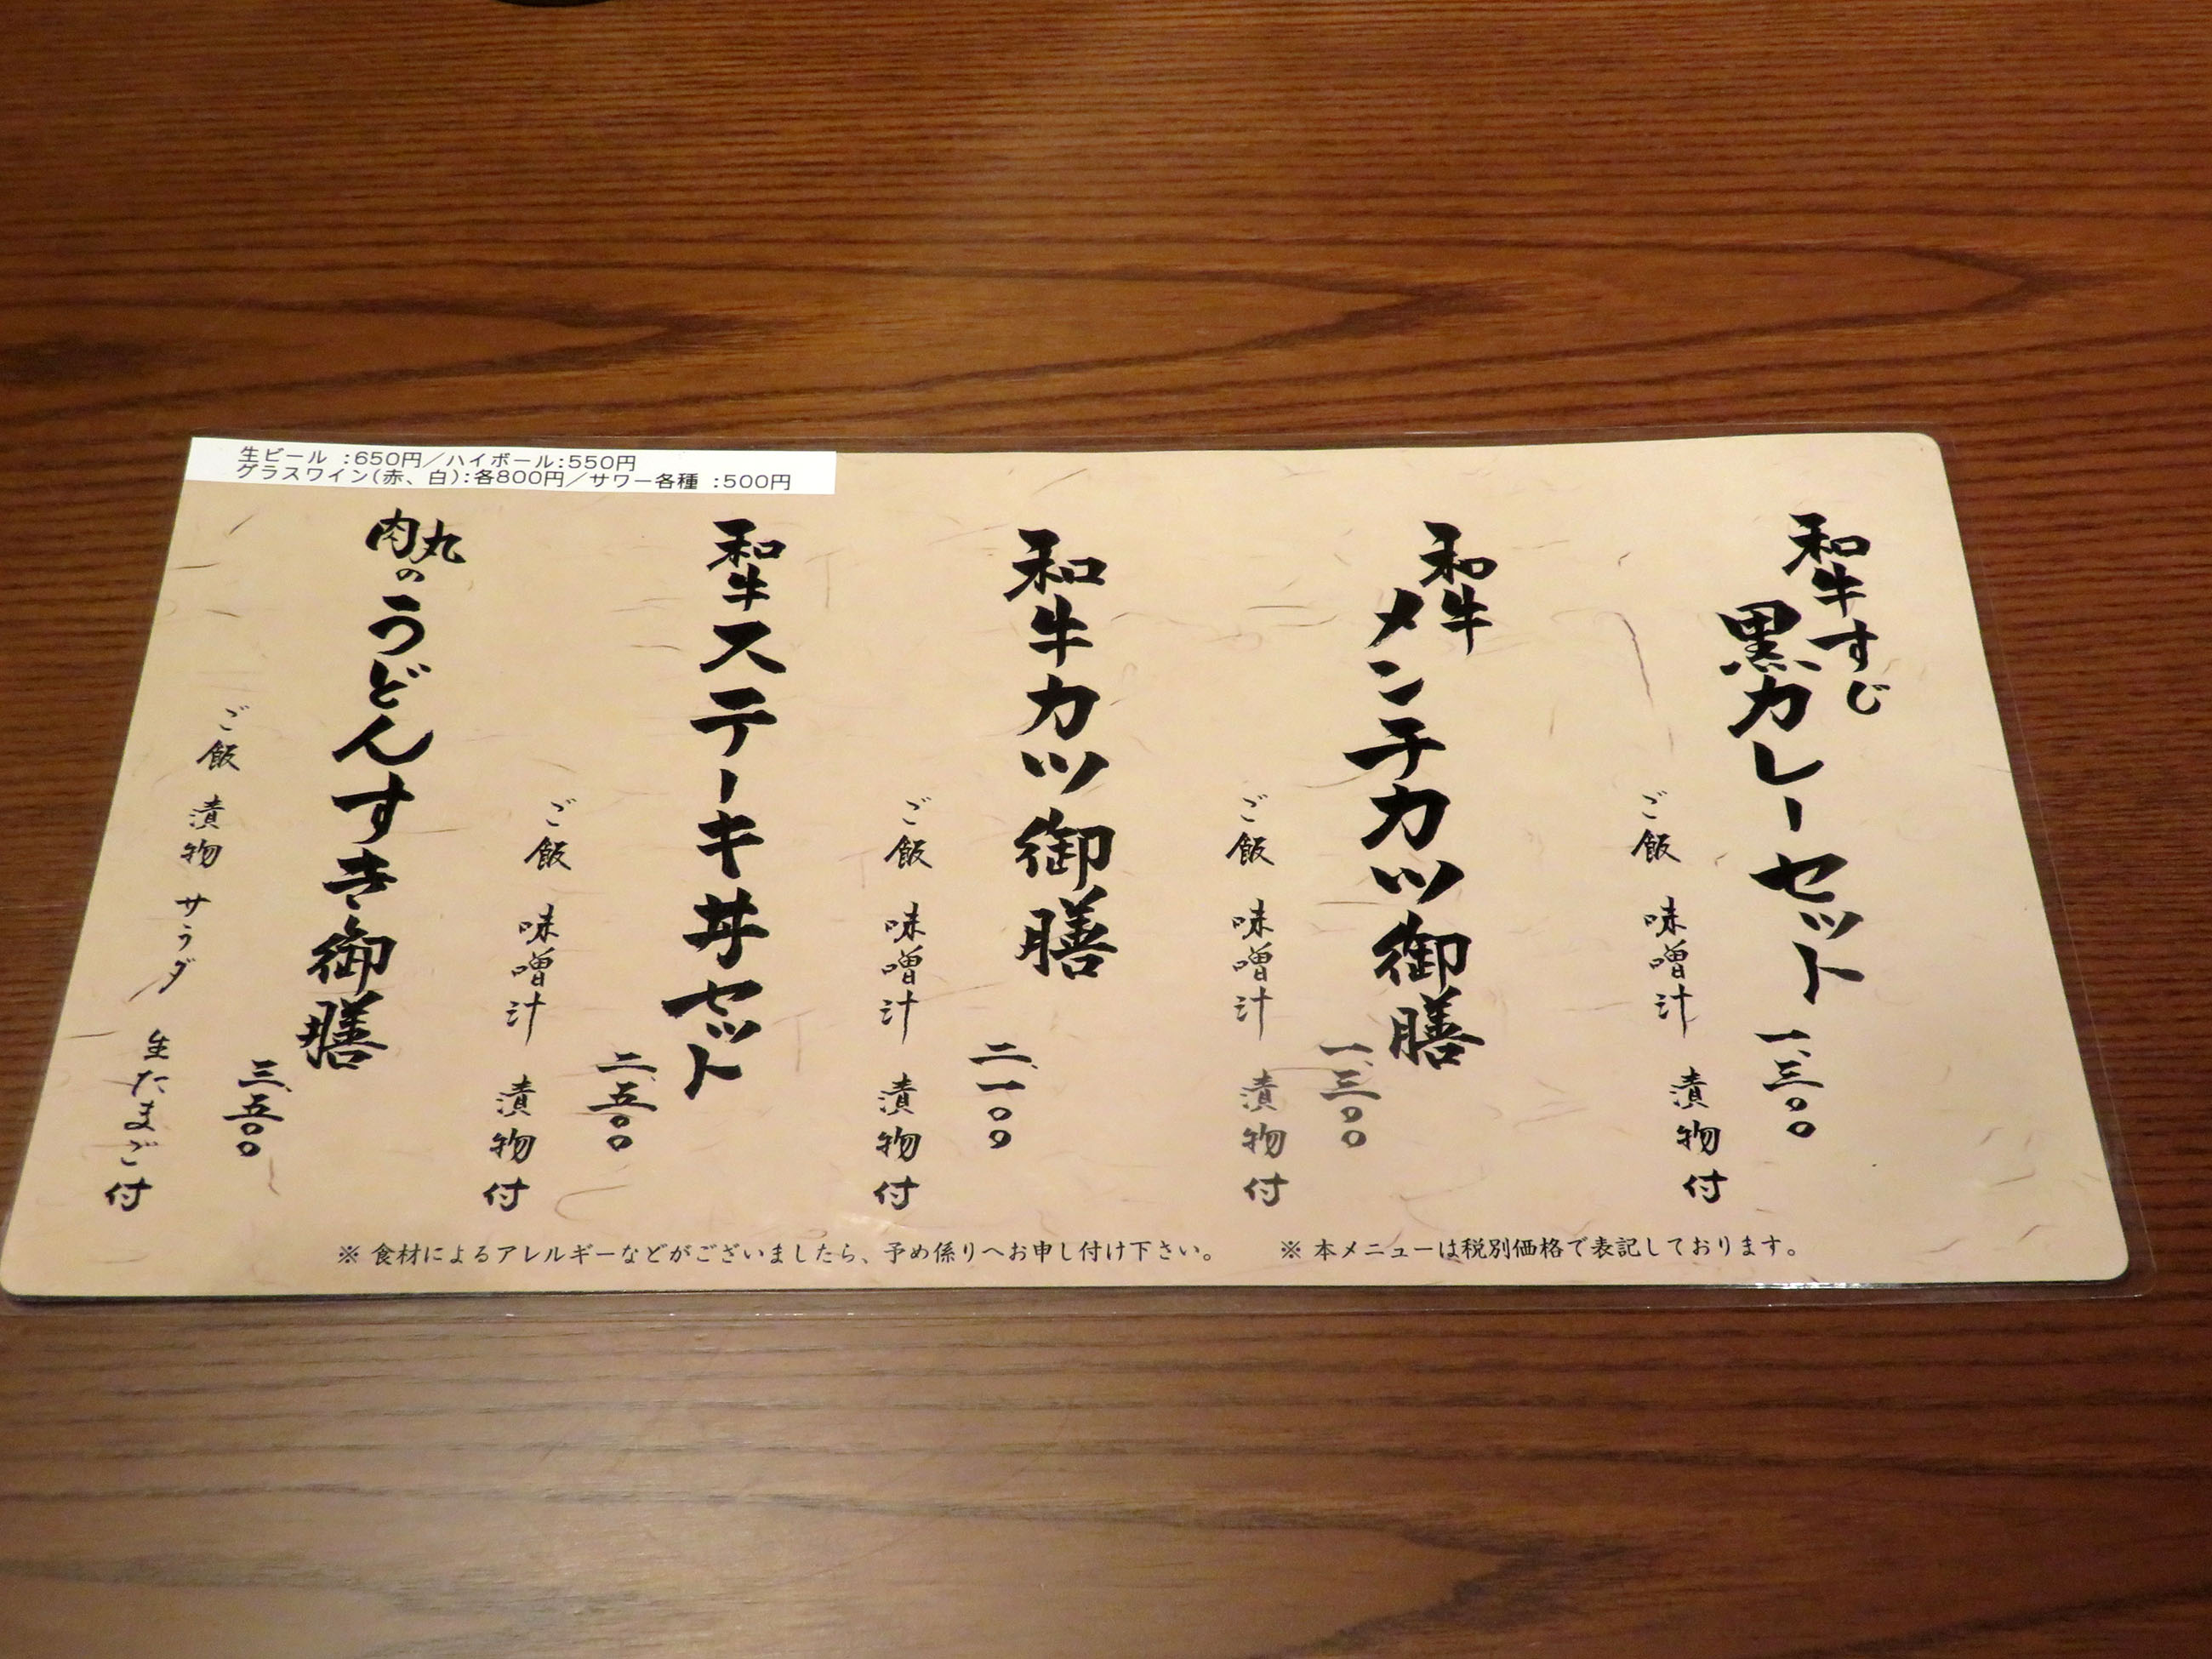 生ビール :650円/ハイボール:550円
グラスワイン(赤、白):各800円/サワー各種 :500円
和牛すじ
黒カレーセット
一、三〇〇
ご飯 味噌汁 漬物付
和牛
メンチカツ御膳
一、三〇〇
ご飯 味噌汁 漬物付
和牛カツ御膳
二、一〇〇
ご飯 味噌汁 漬物付
和牛ステーキ丼セット
二、五〇〇
ご飯 味噌汁 漬物付
肉丸の
うどんすき御膳
三、五〇〇
ご飯 漬物 サラダ 生たまご付
※ 食材によるアレルギーなどがございましたら、予め係りへお申し付け下さい。
※ 本メニューは税別価格で表記しております。